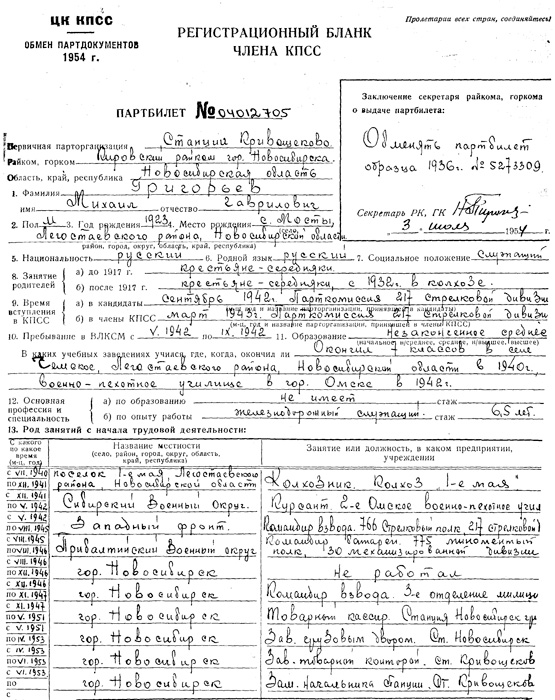 ЦК КПСС
ОБМЕН ПАРТДОКУМЕНТОВ
1954 г.
Пролетарии всех стран, соединяйтесь!
РЕГИСТРАЦИОННЫЙ БЛАНК
ЧЛЕНА КПСС
ПАРТБИЛЕТ №04012705
Заключение секретаря райкома, горкома
о выдаче партбилета:
Обменять партбилет
образца 1936г. № 5273309.
Секретарь РК, ГК
3 июля 1954 г.
Первичная парторганизация Станции Кривощеково
Райком, горком Кировский райком гор. Новосибирска.
Область, край, республика Новосибирская область
1. Фамилия Григорьев
имя Михаил отчество Гаврилович
2. Пол м 3. Год рождения 1923 4. Место рождения с. Мосты, (село,
Легостаевского района, Новосибирской области
район, город, округ, область, край, республика)
5. Национальность русский 6. Родной язык русский 7. Социальное положение служащий
8. Занятие родителей а) до 1917 г. крестьяне-середняки.
б) после 1917 г. крестьяне-середняки, с 1932г. в колхозе.
9. Время вступления в КПСС а) в кандидаты сентябрь 1942г. Парткомиссия 217 стрелковой дивизии
(м-ц, год и название парторганизации, принявшей в кандидаты)
б) в члены КПСС март 1943г. Парткомиссия 217 стрелковой дивизии
(м-ц, год и название парторганизации, принявшей в члены КПСС)
10. Пребывание в ВЛКСМ с V. 1942 по IX. 1942 11. Образование незаконченное среднее
(начальное, н/среднее, среднее, н/высшее, высшее)
В каких учебных заведениях учился, где, когда, окончил ли Окончил 7 классов в селе
Гемское, Легостаевского района, Новосибирской области в 1940г.,
военно-пехотное училище в гор. Омске в 1942г.
12. Основная профессия и специальность а) по образованию не имеет стаж
б) по опыту работы железнодорожный служащий. стаж 6,5 лет.
13. Род занятий с начала трудовой деятельности:
С какого по какое время (м-ц, год) Название местности (село, район, город, округ, область, край, республика) Занятие или должность, в каком предприятии, учреждении
с VII. 1940 по XII. 1941 поселок 1-е мая Легостаевского района Новосибирской области Колхозник. Колхоз "1-е мая"
с XII. 1941 по V. 1942 Сибирский Военный Округ. Курсант. 2-е Омское военно-пехотное учил
с V. 1942 по VIII. 1945 Западный фронт. Командир взвода. 766 Стрелковый полк, 217 стрелковой
с VIII. 1945 по VIII. 1946 Прибалтийский Военный округ Командир батареи. 775 минометный полк, 30 механизированной дивизии
с VIII. 1946 по XII. 1946 гор. Новосибирск Не работал
с XII. 1946 по XI. 1947 гор. Новосибирск Командир взвода. 3-е отделение милиции
с XI. 1947 по V. 1951 гор. Новосибирск Товарный кассир. Станция Новосибирск
с V. 1951 по IV. 1953 гор. Новосибирск Зав. грузовым двором. Ст. Новосибирск
с IV. 1953 по VI. 1953 гор. Новосибирск Зав. товарной конторой. ст. Кривощеков
с VI. 1953 по гор. Новосибирск Зам. начальника станции. Ст. Кривощеков
с